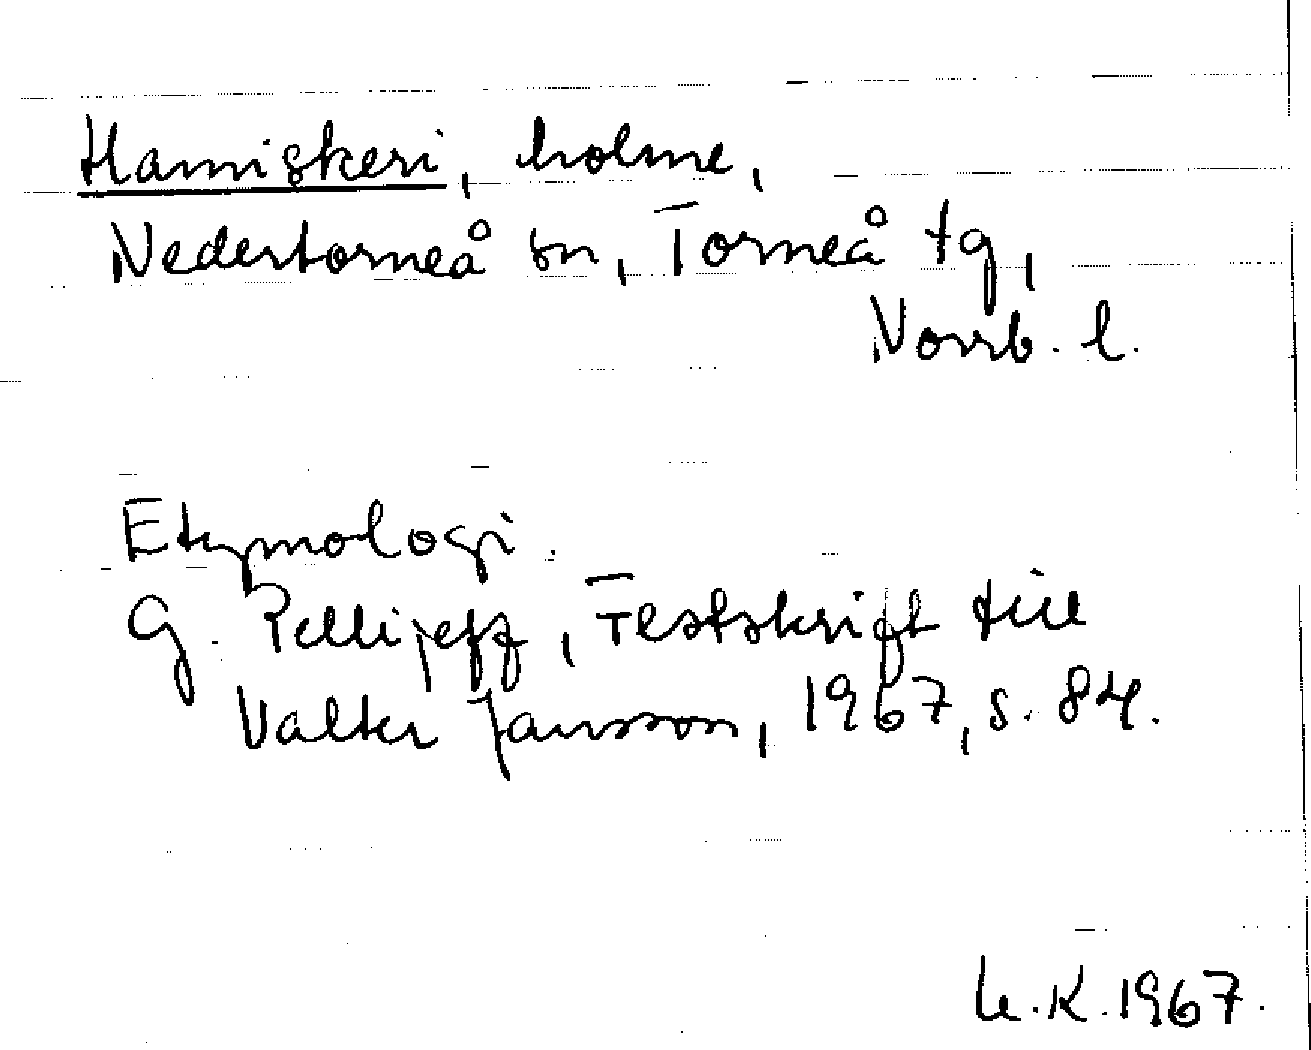 Hamiskeri, holme,
Nedertorneå sn, Torneå tg,
Norrb. l.
Etymologi.
G. Pellijeff, Festskrift till
Valter Jansson, 1967, s. 84.
K. 1967.